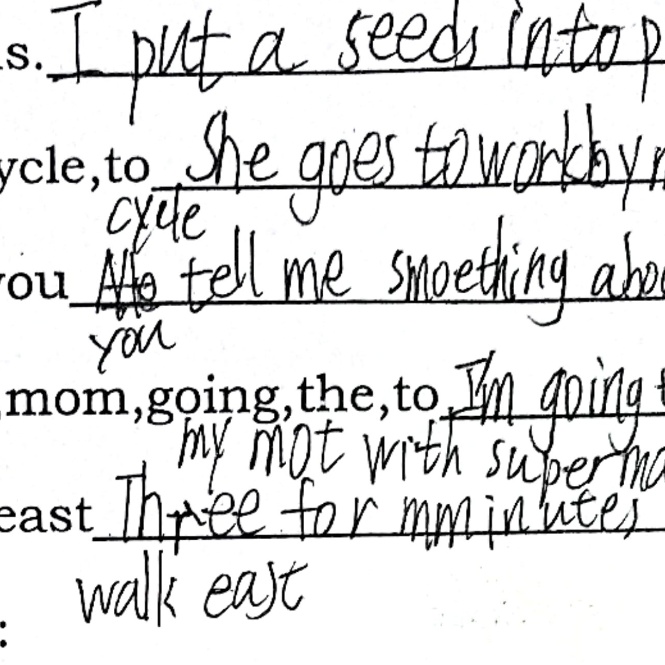 s. I put a seeds into p
ycle,to She goes to work by
cycle
you to tell me smoething abo
you
,mom,going,the,to I'm going t
my mot with superma
east Three for mminutes
walk east
: